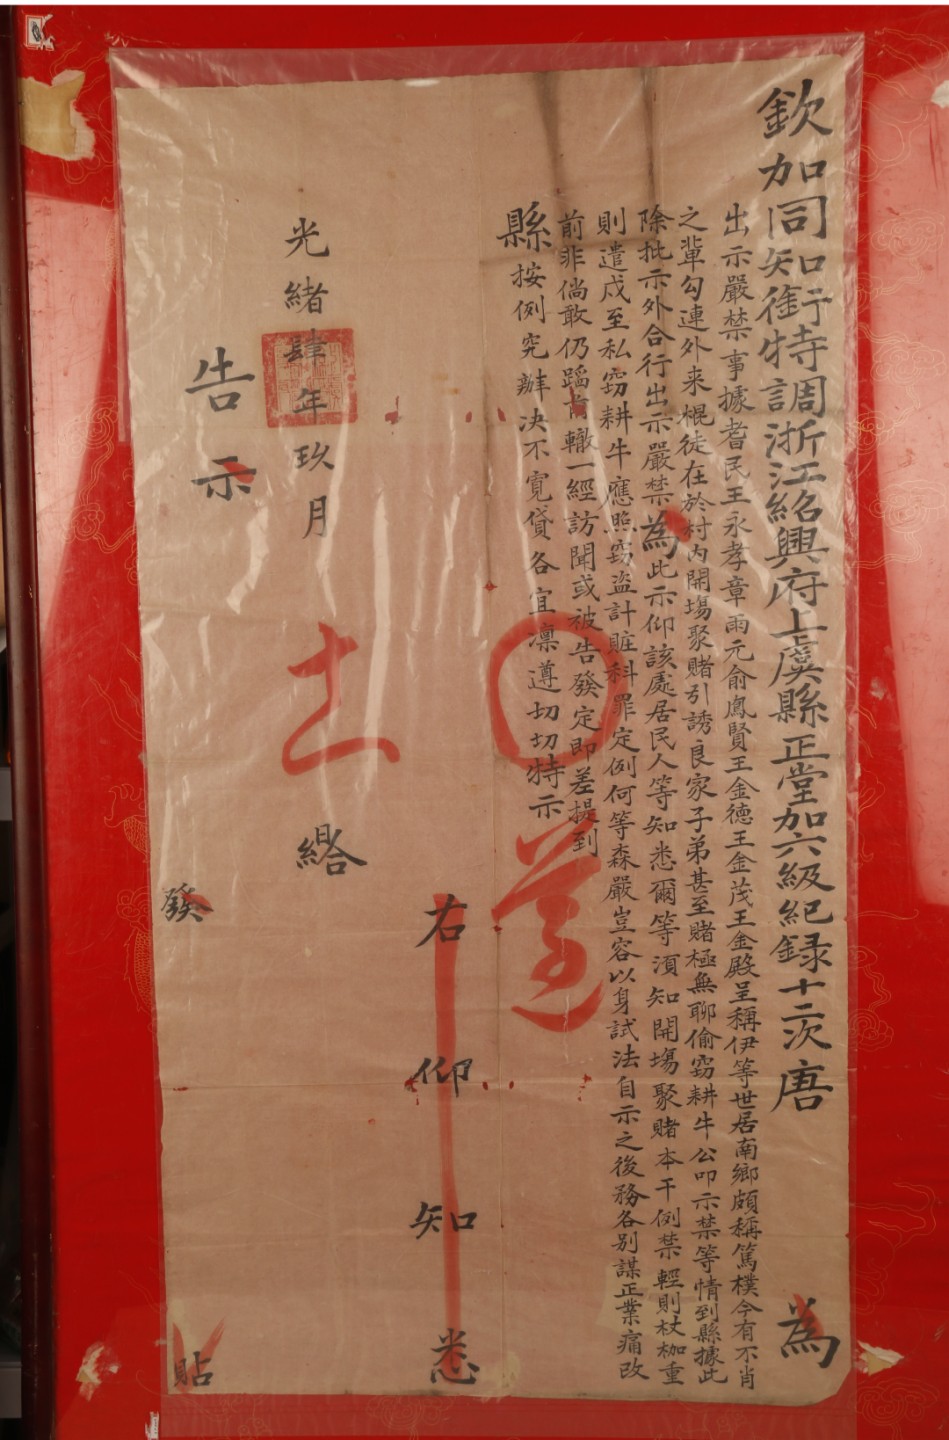 欽加同知銜特調浙江紹興府上虞縣正堂加六級紀錄十二次唐 為
出示嚴禁事據耆民王永孝章雨元俞鳳賢王金德王金茂王金殿呈稱伊等世居南鄉頗稱篤樸今有不肖
之輩勾連外来棍徒在於村內開塲聚賭引誘良家子弟甚至賭極無聊偷竊耕牛公叩示禁等情到縣據此
除批示外合行出示嚴禁為此示仰該處居民人等知悉爾等須知開塲聚賭本干例禁輕則杖枷重
則遣戍至私窃耕牛應照窃盗計賍科罪定例何等森嚴豈容以身試法自示之後務各別謀正業痛改
前非倘敢仍蹈前轍一經訪聞或被告發定即差提到
縣按例究辦决不寬貸各宜凛遵切切特示
遵
右仰知悉
光緒肆年玖月 十一 綹
告示
發 貼